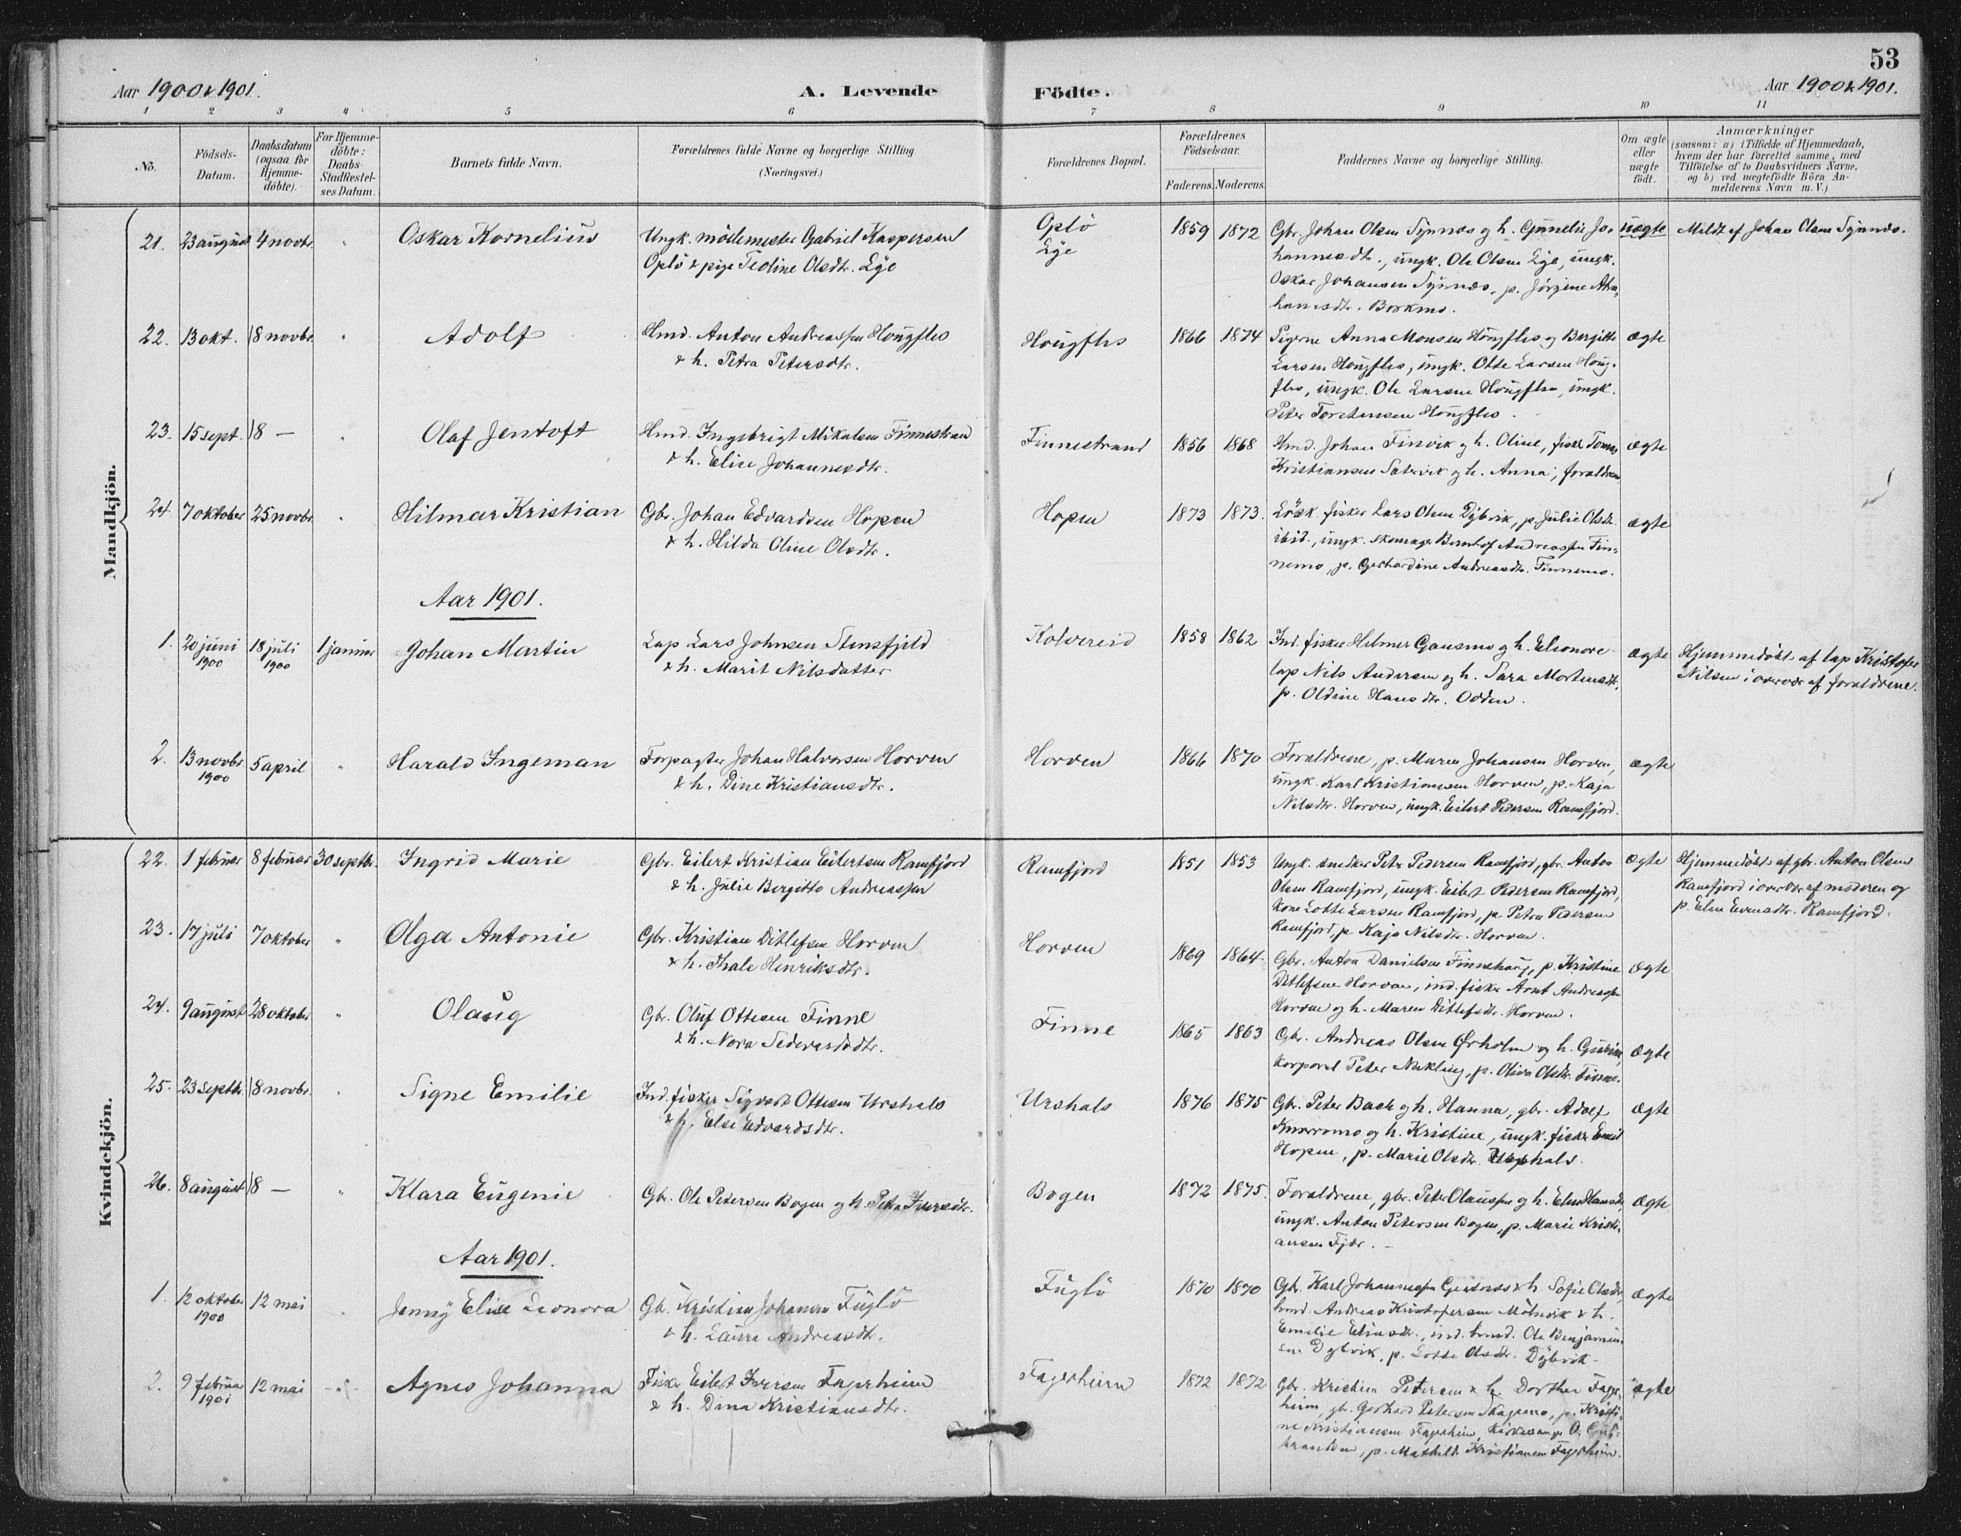 53
Aar 1900 & 1901.
A. Levende
Födte.
Aar 1900 & 1901.
1 2 3 4 5 6 7 8 9 10 11
No.
Födsels-Datum.
Daabsdatum (ogsaa for Hjemme-döbte).
For Hjemme-döbte: Daabs-Stadfæstel-ses Datum.
Barnets fulde Navn.
Forældrenes fulde Navne og borgerlige Stilling. (Næringsvei.)
Forældrenes Bopæl.
Forældrenes Födselsaar.
Faderens. Moderens.
Faddernes Navne og borgerlige Stilling.
Om ægte eller uægte födt.
Anmærkninger
(saasom: a) i Tilfælde af Hjemmedaab, hvem der har forrettet samme, med Tilföielse af to Daabsvidners Navne, og b) ved uægtefödte Börn An-melderens Navn m. V.)
Mandkjön.
21. 23 august 4 novbr. " Oskar Kornelius
Ungk. mödemester Gabriel Kaspersen
Oplö & pige Teoline Olsdtr. Eye
Oplö
Eye
1859 1872
Gbr. Johan Olsen Synnes og h. Gunnelie Jo-
hannesdtr., ungk. Ole Olsen Eye, ungk.
Oskar Johansen Synnes, p. Jörgine
uægte
Mildt af Johan Olsen Synnes.
22. 13 okt. 18 novbr. " Adolf
Hmd. Anton Andreassen Hougfles
& h. Petra Petersdtr.
Hougfles
1866 1874
Pigerne Anna Monsen Hougfles og Bergitte
Larsen Hougfles, ungk. Otte Larsen Houg-
fles, ungk. Ole Larsen Hougfles, ungk.
Peter Torstensen Hougfles.
ægte
23. 15 sept. 18 — " Olaf Jentoft
Hmd. Ingebrigt Mikalsen Finnestrand
& h. Elise Johannesdtr.
Finnestrand
1856 1868
Hmd. Johan Finvik og h. Oline, fisker Tomas
Kristiansen Sætervik og h. Anna, forældrene
ægte
24. 7 oktober 25 novbr. " Hilmar Kristian
Gbr. Johan Edvardsen Hopen
& h. Hilda Oline Olsdtr.
Hopen
1873 1873.
Lösk. fisker Lars Olsen Dybvik, p. Julie Olsdtr.
ibid., ungk. skomager Bernhof Andreassen Fin-
nemo, p. Gerhardine Andreasdtr. Finnemo.
ægte
Aar 1901.
1. 20 juni 1900 18 juli 1900 1 januar Johan Martin
Lap Lars Johnsen Stensfjeld
& h. Marit Nilsdatter
Kolvereid
1858 1862
Ind. fisker Hilmer Gansmo og h. Eleonore
lap Nils Andersen og h. Sara Mortensdtr.
p. Oldine Hansdtr. Odden.
ægte
Hjemmedöbt af lap Kristofer
Nilsen i overvær af forældrene.
2. 13 novbr. 1900 5 april " Harald Ingeman
Forpagter Johan Halvorsen Horven
& h. Dine Kristiansdtr.
Horven
1866 1870
Forældrene, p. Maren Johansen Horven,
ungk. Karl Kristiansen Horven, p. Kaja
Nilsdtr. Horven, ungk. Eilert Pedersen Ramfjord.
ægte
Kvindekjön.
22. 1 februar 8 februar 30 septbr. Ingrid Marie
Gbr. Eilert Kristian Eilertsen Ramfjord
& h. Julie Bergitte Andreassen
Ramfjord
1851 1853
Ungk. snedker Peter Pedersen Ramfjord, gbr. Anton
Olsen Ramfjord, ungk. Eilert Pedersen Ramfjord,
kone Lotte Larsen Ramfjord, p. Petra Pedersen
Ramfjord, p. Kaja Nilsdtr. Horven.
ægte
Hjemmedöbt af gbr. Anton Olsen
Ramfjord i overvær af moderen og
p. Elen Evensdtr. Ramfjord.
23. 17 juli 7 oktober " Olga Antonie
Gbr. Kristian Ditlefsen Horven
& h. Thale Henriksdtr.
Horven
1869 1864.
Gbr. Anton Danielsen Finnehaug, p. Kristine
Ditlefsen Horven, ind. fisker Arnt Andreassen
Horven og h. Maren Ditlefsdtr. Horven.
ægte
24. 9 august 28 oktober " Olaug
Gbr. Oluf Ottesen Finne
& h. Nora Sedevardsdtr.
Finne
1865 1863
Gbr. Andreas Olsen Ørholm og h.
korporal Peter Nukling, p. Oliva Olsdtr. Finne.
ægte
25. 23 septbr. 18 novbr. " Signe Emilie
Ind. fisker Sigvart Ottesen Urshals
& h. Else Edvardsdtr.
Urshals
1876 1875
Gbr. Peter Bach og h. Hanna, gbr. Adolf
og h. Kristine, ungk. fisker Emil
Hopen, p. Marie Olsdtr. Urshals.
ægte
26. 8 august 18 — " Klara Eugenie
Gbr. Ole Petersen Bogen og h. Petra Iversdtr.
Bogen
1872 1875.
Forældrene, gbr. Peter Olaussen og h. Elen Hansdtr,
ungk. Anton Petersen Bogen, p. Marie Kristi-
ansen Fjær. —
ægte
Aar 1901.
1. 12 oktober 1900 12 mai " Jenny Elise Leonora
Gb. Kristian Johansen Fuglö
& h. Laura Andreasdtr.
Fuglö
1870 1870
Gbr. Karl Johannessen & h. Sofie Olsdtr,
hmd. Andreas Kristofersen Mölnvik & h.
Emilie Eliasdtr., ind. hmd. Ole Benjamin-
sen Dybvik, p. Lotte Olsdtr. Dybvik.
ægte
2. 9 februar 1901 12 mai " Agnes Johanna
Fisker Eilert Iversen Fagerheim
& h. Dina Kristiansdtr.
Fagerheim
1872 1872
Gbr. Kristian Petersen & h. Dorthea Fager-
heim, gb. Gerhard Petersen Skagemo, p. Kristi-
ne Kristiansen Fagerheim, kirkesanger O. Gul-
branden, p. Mathilde Kristiansen Fagerheim.
ægte